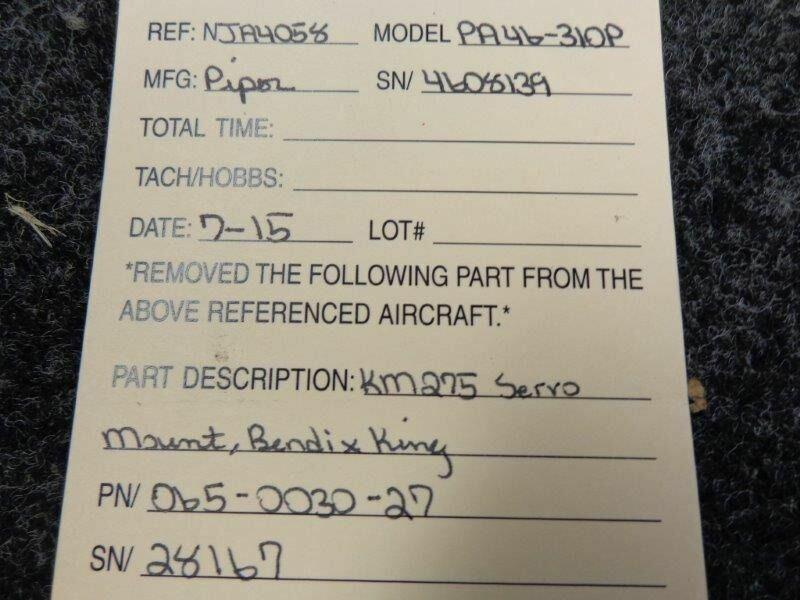 REF: NJA4058 MODEL PA46-310P
MFG: Piper SN/ 4608139
TOTAL TIME:
TACH/HOBBS:
DATE: 7-15 LOT#
*REMOVED THE FOLLOWING PART FROM THE
ABOVE REFERENCED AIRCRAFT.*
PART DESCRIPTION: KM275 Servo
Mount, Bendix King
PN/ 065-0030-27
SN/ 28167